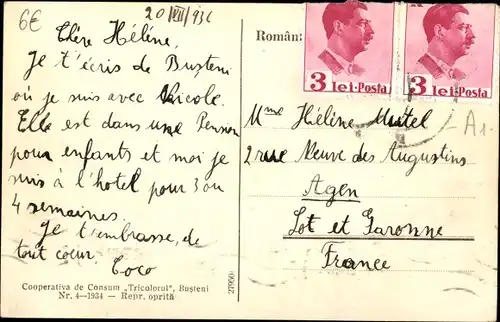 6€
20/VII/936
Chère Hélène,
Je t'écris de Buşteni
où je suis avec Nicole.
Elle est dans une Pension
pour enfants et moi je
suis à l'hotel pour 3 ou
4 semaines.
Je t'embrasse, de
tout coeur.
Coco
Cooperativa de Consum „Tricolorul", Buşteni
Nr. 4—1934 — Repr. oprită
27950
Român
3 lei·Posta
3 lei·Posta
A1-
Mme Hélène Mutel
2 rue Neuve des Augustins
Agen
Lot et Garonne
France